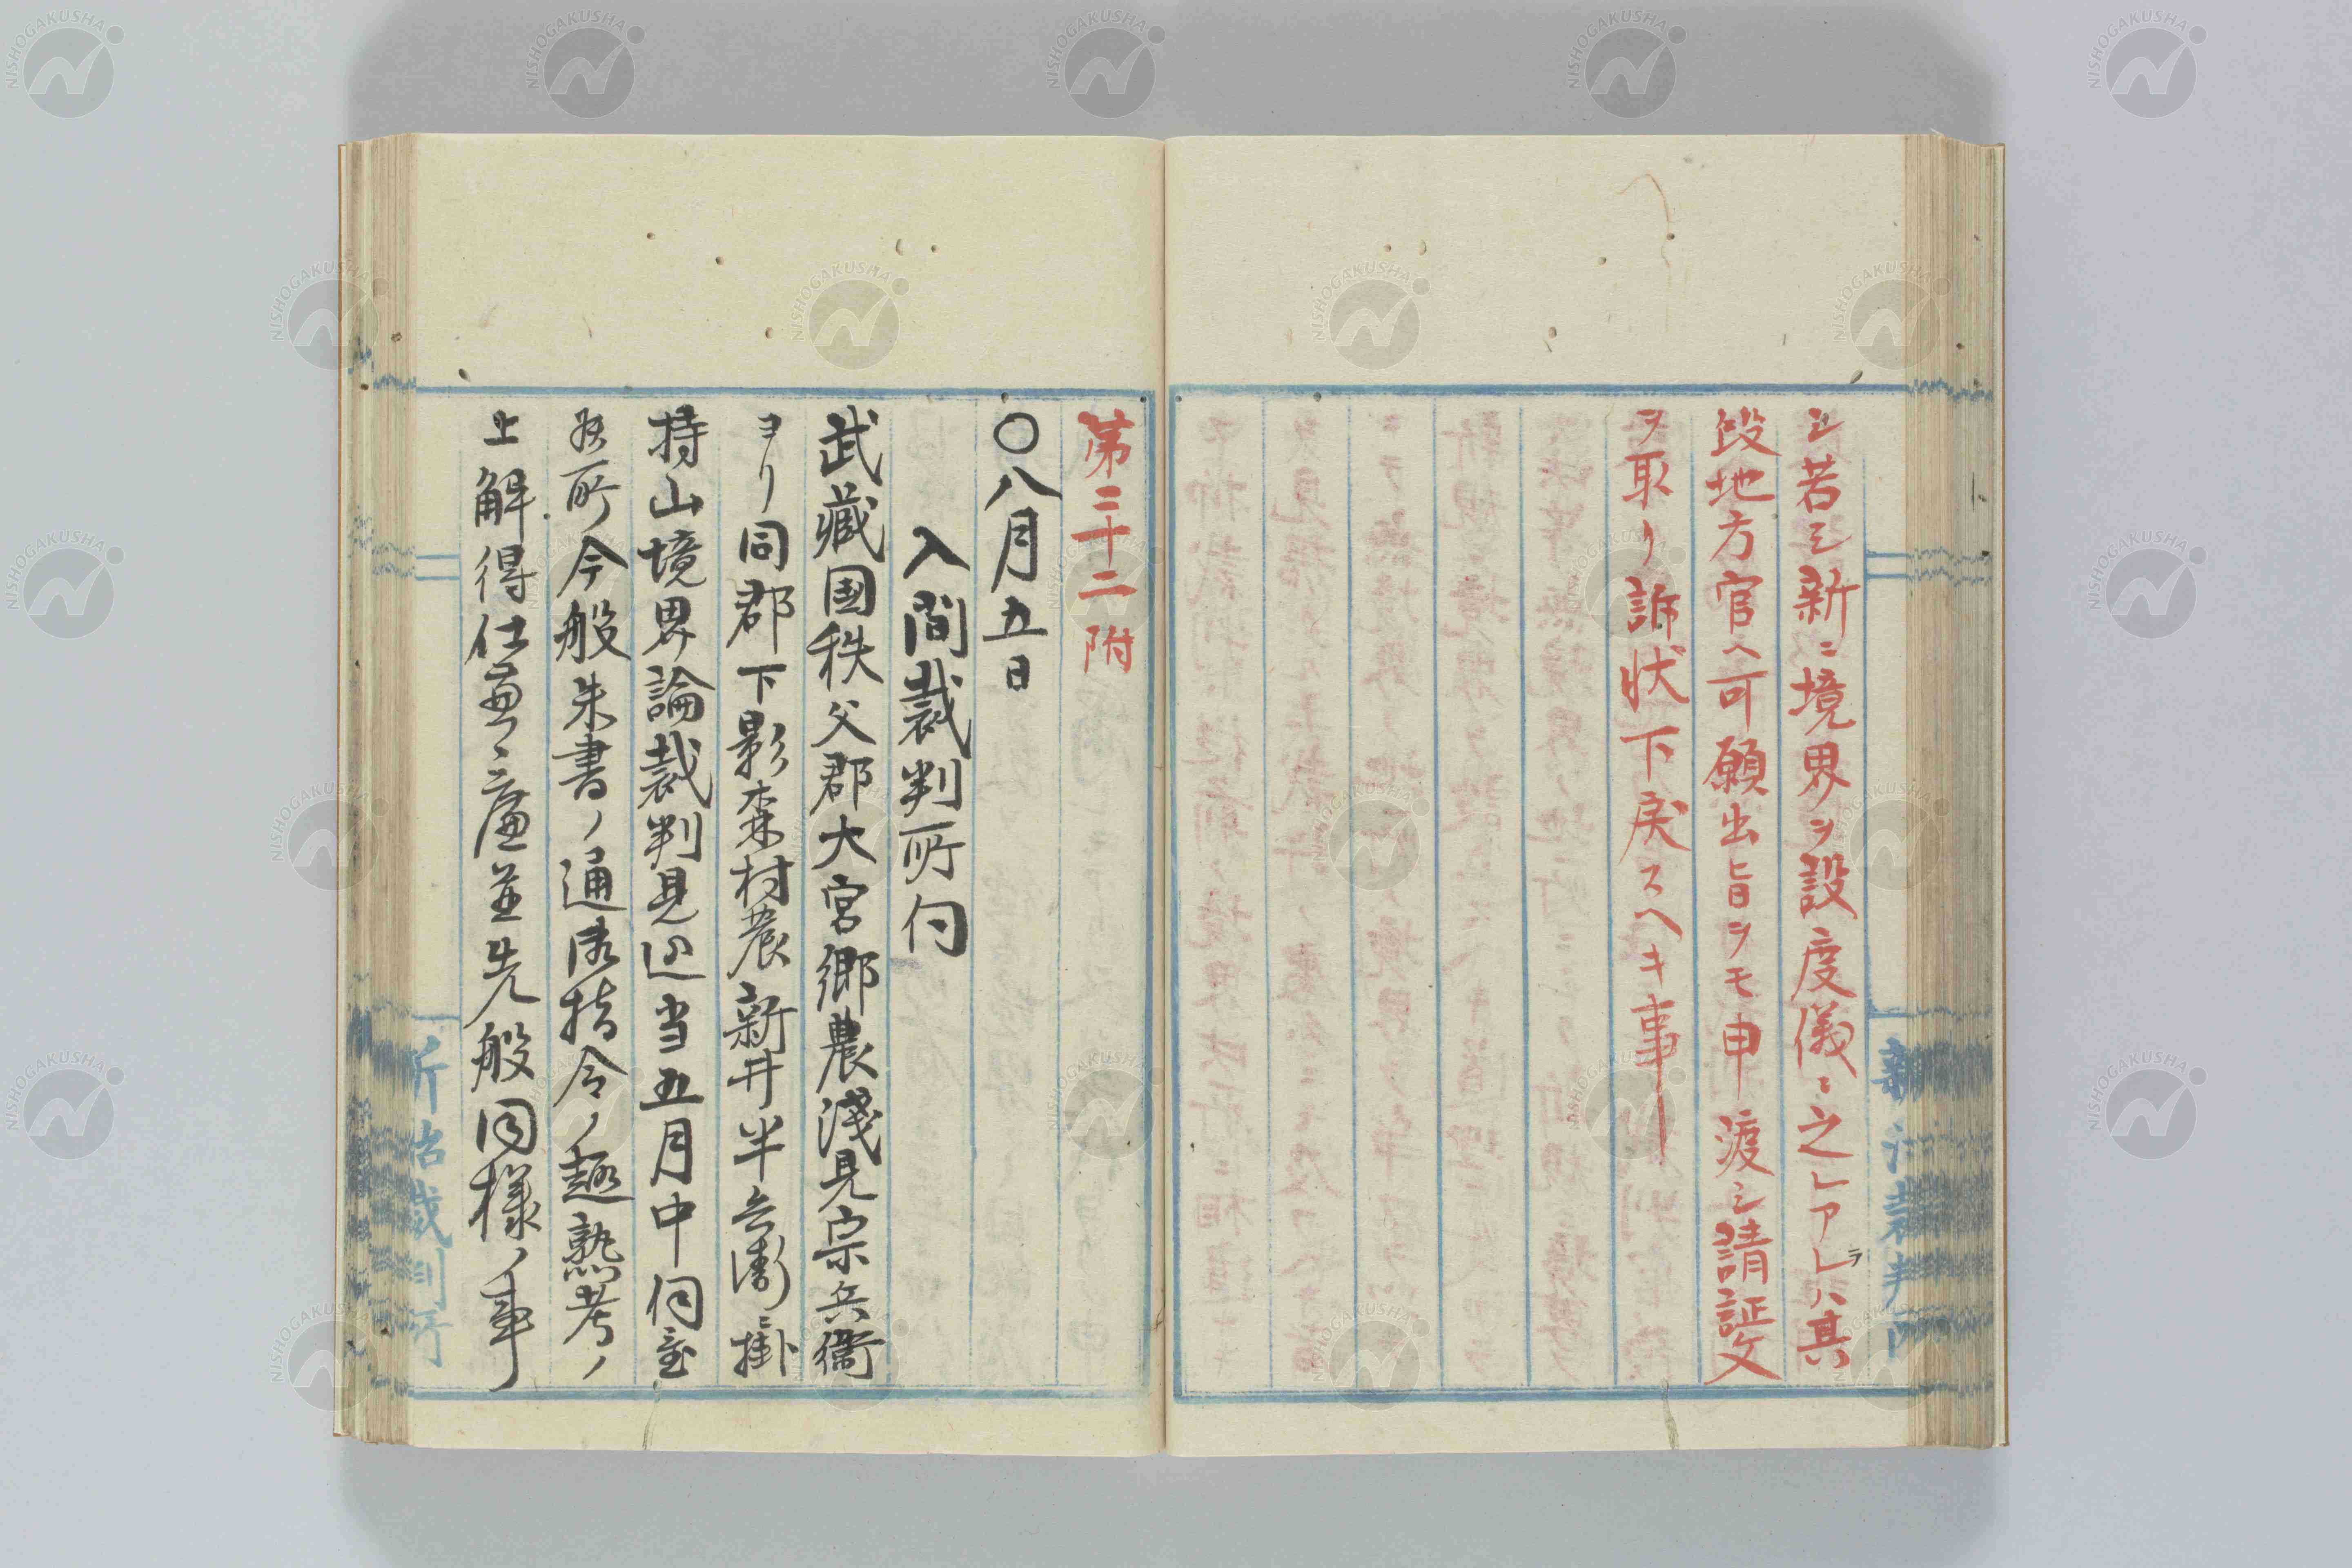 シ若シ新ニ境界ヲ設度儀ニ之レアレハ其
ラ
段地方官ヘ可願出旨ヲモ申渡シ請証文
ヲ取リ訴状下戻スヘキ事
第三十二附
〇八月五日
入間裁判所伺
武藏国秩父郡大宮郷農淺見宗兵衞
ヨリ同郡下影森村農新井半兵衛ニ掛
持山境界論裁判見込当五月中伺置
候所今般朱書ノ通御指令ノ趣熟考ノ
上解得仕兼ニ廉並先般同様ノ事
新治裁判所
NISHOGAKUSHA